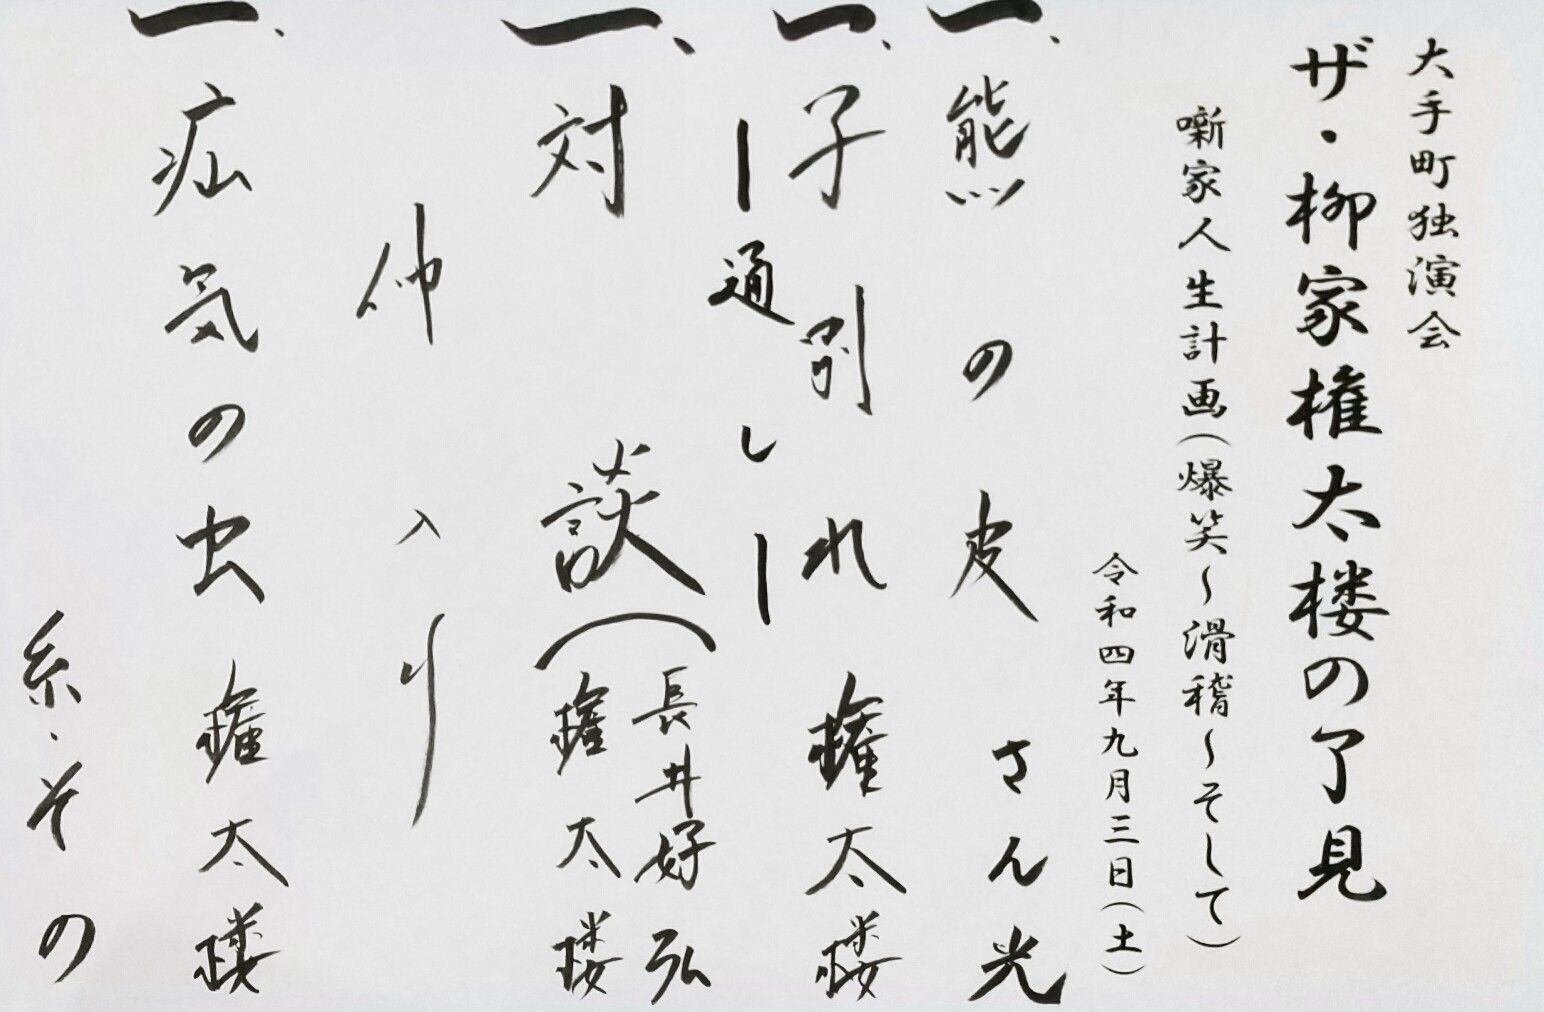 大手町独演会
ザ・柳家権太楼の了見
噺家人生計画(爆笑〜滑稽〜そして)
令和四年九月三日(土)
一、熊の皮 さん光
一、子別れ 権太楼
ー通しー
一、対談(長井好弘
権太楼
仲入り
一、疝気の虫 権太楼
糸・その